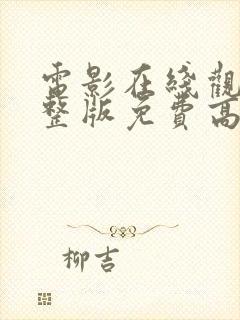 電影在綫觀
整版免費高
柳吉